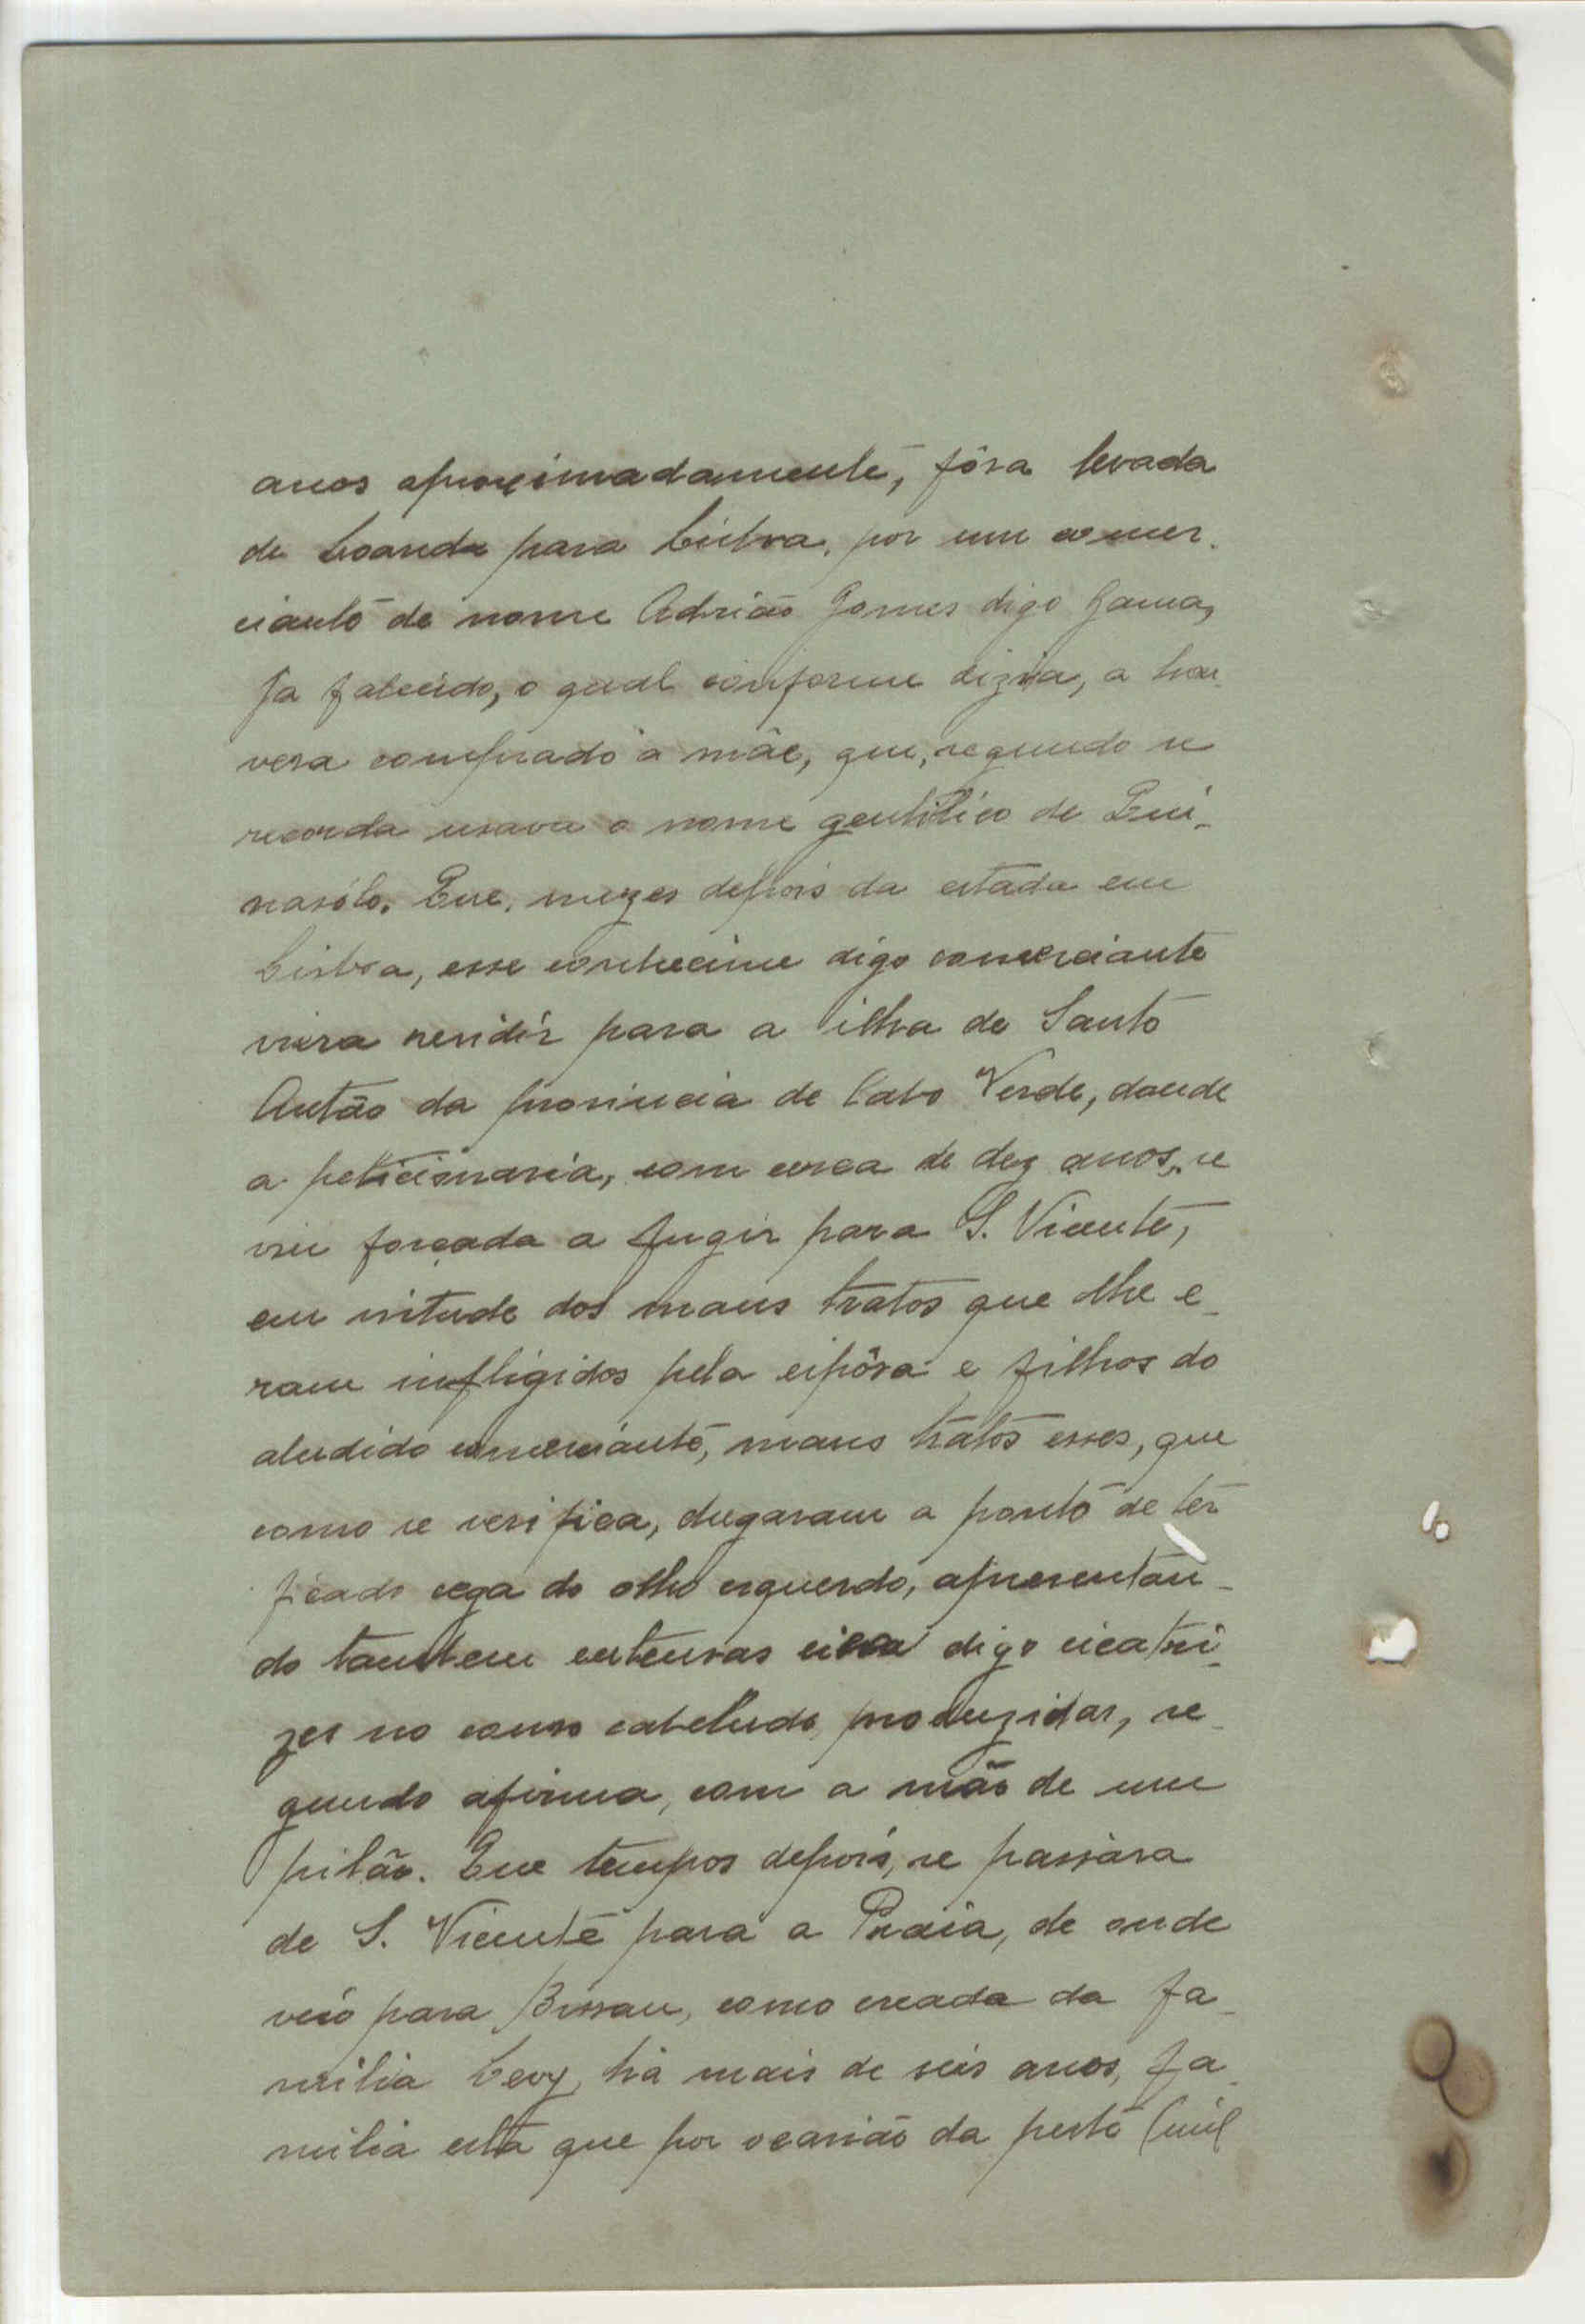 anos aproximadamente, fôra levada
de Loanda para Lisboa, por um comer-
ciante de nome Adrião Gomes digo Gama,
já falecido, o qual conforme dizia, a hou-
vera comprado á mãe, que, segundo se
recorda usava o nome gentilico de Qui-
nasólo. Que, mezes depois da estada em
Lisboa, esse conhecime digo comerciante
viera residir para a ilha de Santo
Antão da provincia de Cabo Verde, donde
a peticionaria, com cerca de dez anos, se
viu forçada a fugir para S. Vicente,
em vitude dos maus tratos que lhe e-
ram infligidos pela espôsa e filhos do
aludido comerciante, maus tratos esses, que
como se verifica, chegaram a ponto de ter
ficado cega do olho esquerdo, apresentan-
do tambem extensas cica digo cicatri-
zes no couro cabeludo produzidas, se-
gundo afirma, com a mão de um
pilão. Que tempos depois, se passára
de S. Vicente para a Praia, de onde
veio para Bissau, como creada da fa-
milia Levy, há mais de seis anos, fa-
milia esta que por ocasião da peste (mil